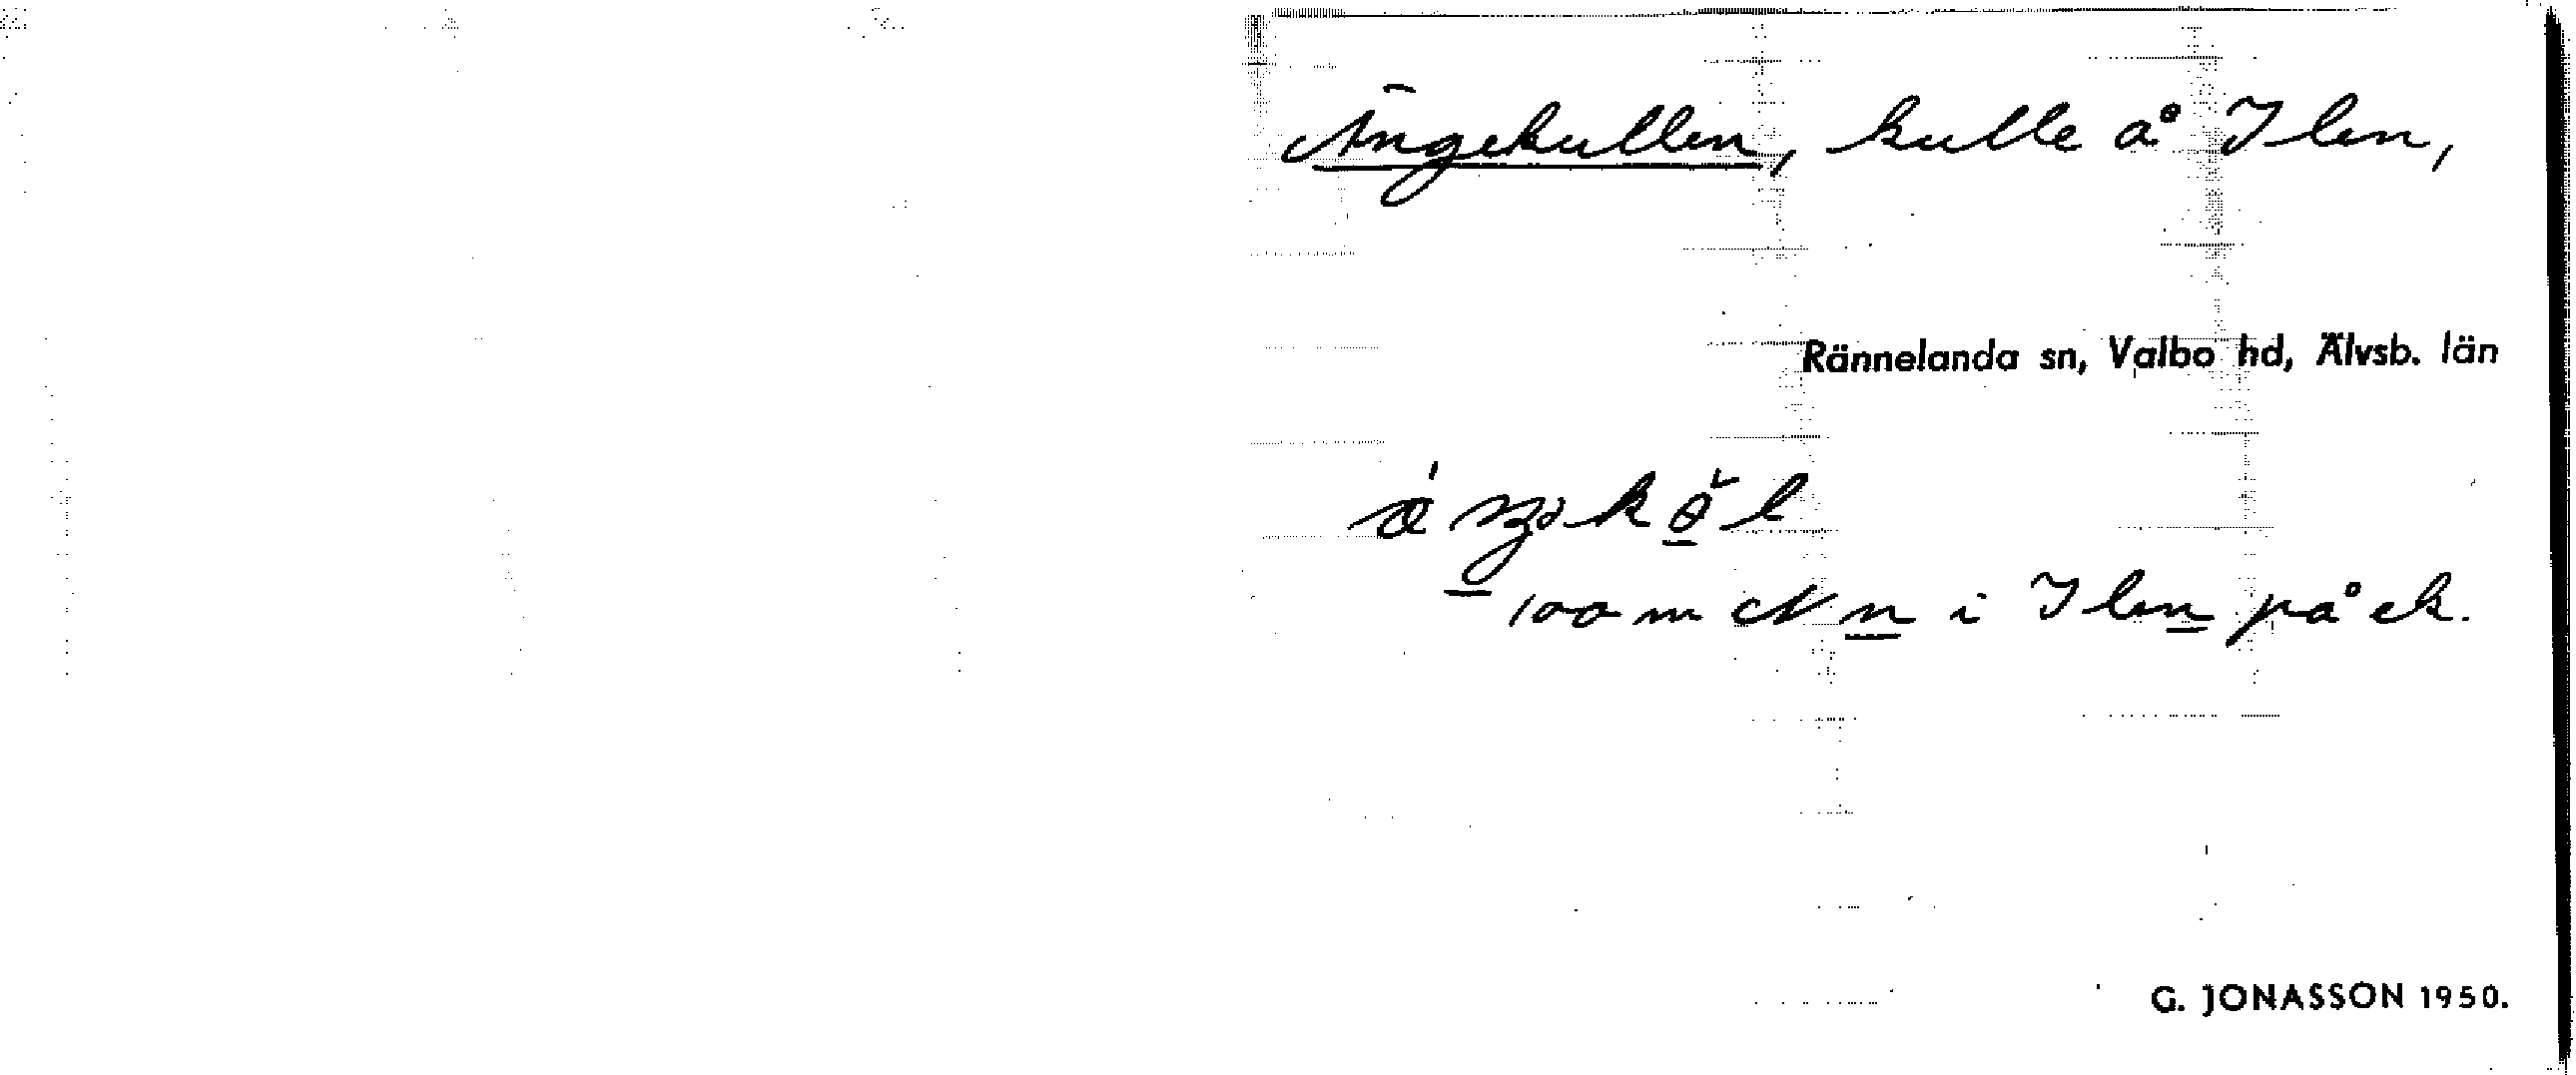 Ängekullen, kulle å Ilen,
Rännelanda sn, Valbo hd, Älvsb. län
100 m N n i Ilen på ek.
G. JONASSON 1950.